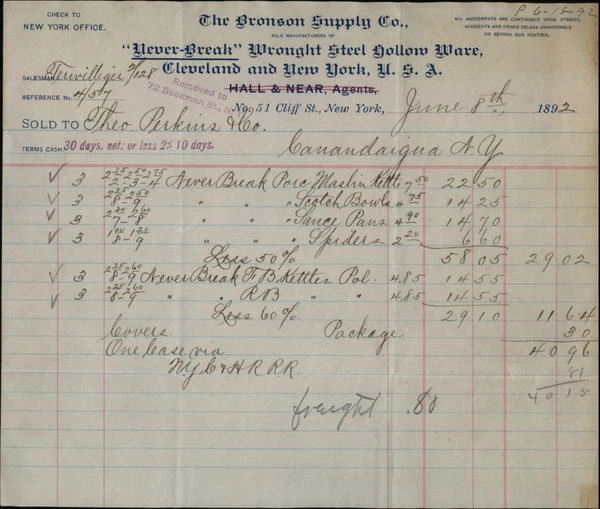 CHECK TO
NEW YORK OFFICE.
P 6-18-92
The Bronson Supply Co.,
SOLE MANUFACTURERS OF
ALL AGREEMENTS ARE CONTINGENT UPON STRIKES,
ACCIDENTS AND OTHER DELAYS UNAVOIDABLE
OR BEYOND OUR CONTROL.
"Never-Break" Wrought Steel Hollow Ware,
Cleveland and New York, U. S. A.
SALESMAN Terwilliger 5/128
HALL & NEAR, Agents,
Removed to
72 Beekman St., N.Y.
REFERENCE No. 4/537
No. 51 Cliff St., New York, June 8th 1892
SOLD TO Theo. Perkins & Co.
TERMS CASH 30 days. net; or less 2% 10 days.
Canandaigua N.Y
3 2 25 2 50 2 75 2-3-4 Never Break Porc Maslin Kettl 7 50 22 50
3 2 25 2 50 8-9 " " " Scotch Bowls 4 75 14 25
3 2 30 2 60 7-8 " " " Sauce Pans 4 90 14 70
3 1 00 1 20 8-9 " " " Spiders 2 20 6 60
Less 50% 58 05 29 02
3 2 25 2 60 8-9 Never Break F. B Kettles Pol. 4.85 14 55
3 2 25 2 60 8-9 " " R B " " 4.85 14 55
Less 60% 29 10 11 64
Covers Package 30
One Case via 40 96
N.Y C & H R R.R. 81
40 15
freight .80